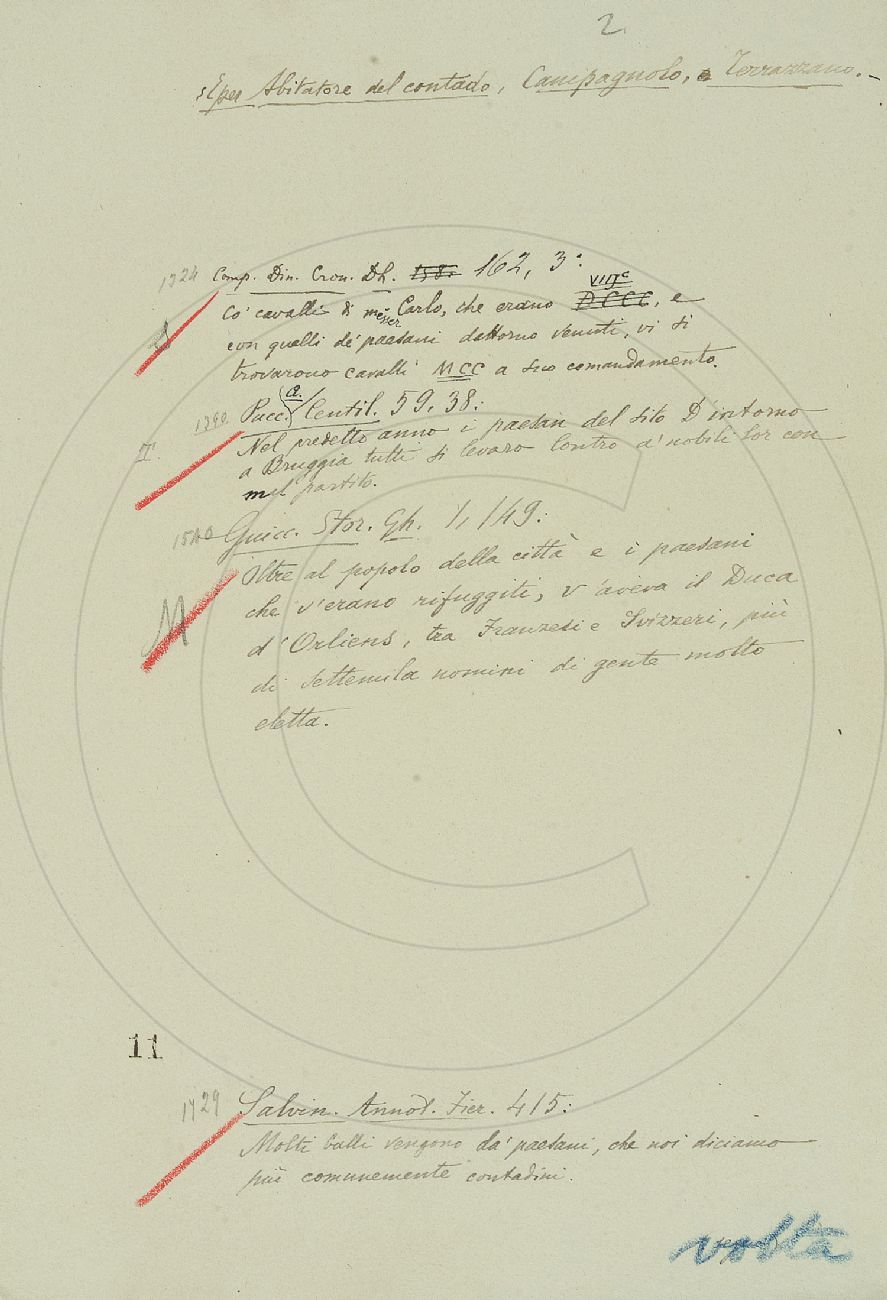 2.
E per Abitatore del contado, Campagnolo, o Terrazzano. -
1324 Comp. Din. Cron. Dh. 162, 3:
VIIIc
Co' cavalli di messer Carlo, che erano DCCC, e
con quelli de' paesani dattorno venuti, vi si
trovarono cavalli MCC a suo comandamento.
Pucc. a. Centil. 59. 38:
T. Nel predetto anno i paesan del sito D'intorno
a Bruggia tutti si levaro Contro a' nobili lor con
mal partito.
1540 Guicc. Stor. Gh. 1, 149:
Oltre al popolo della città e i paesani
che v'erano rifuggiti, v'aveva il Duca
M d'Orliens, tra Franzesi e Svizzeri, più
di settemila uomini di gente molto
eletta.
11
1729 Salvin. Annot. Fier. 415:
Molti balli vengono da' paesani, che noi diciamo
più comunemente contadini.
volta